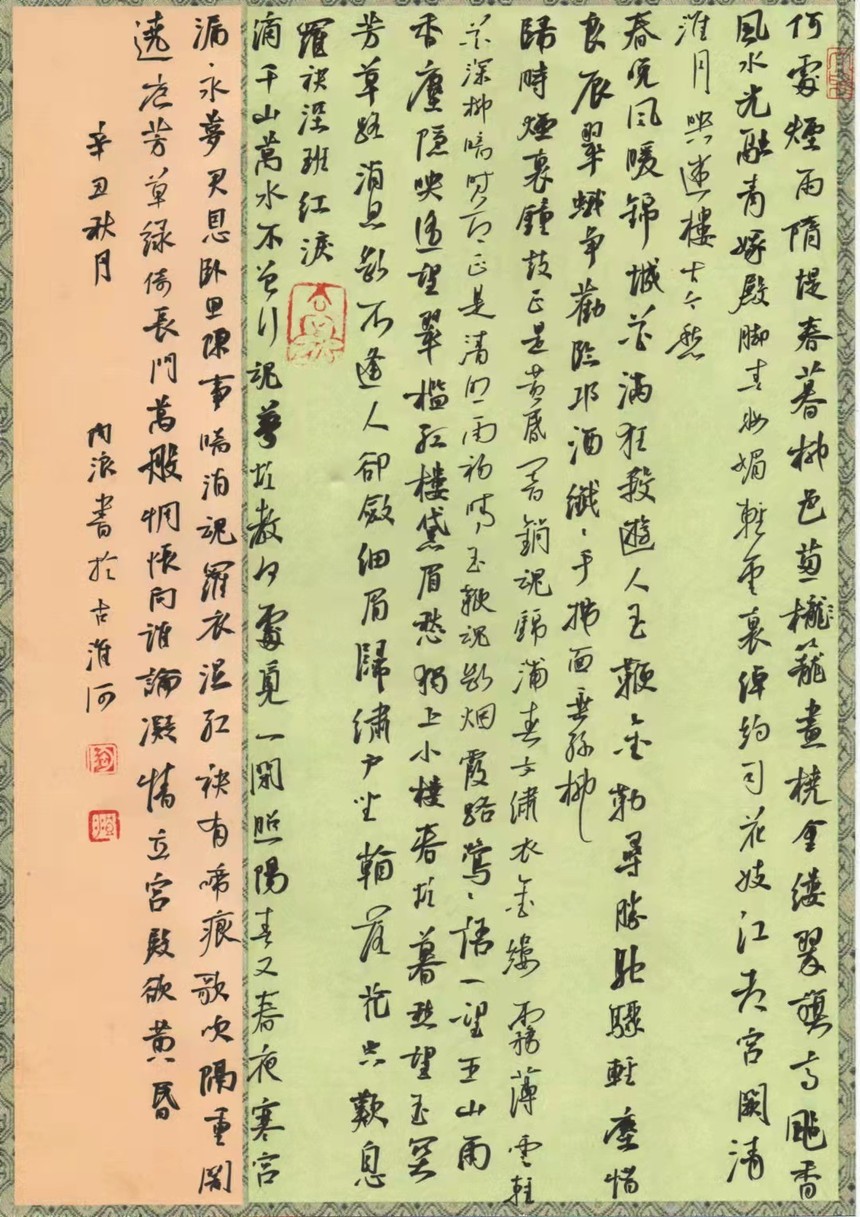 何處煙雨隋堤春暮柳色蔥櫳籠畫橈金縷翠旗高颭香
風水光融青娥殿腳春妝媚輕雲裏綽約司花妓江都宮闕清
淮月映迷樓古今愁
春晚風暖錦城花滿狂殺遊人玉鞭金勒尋勝馳驟輕塵惜
良辰翠蛾爭勸臨邛酒纖〻手拂面垂絲柳
歸時煙裏鐘鼓正是黃昏暗銷魂錦浦春女繡衣金縷霧薄雲輕
花深柳暗時節正是清明雨初晴玉鞭魂斷烟霞路鶯〻語一望巫山雨
香塵隱映遙望翠檻紅樓黛眉愁獨上小樓春欲暮愁望玉關
芳草路消息斷不逢人卻斂細眉歸繡戶坐看落花空歎息
羅袂溼斑紅淚
滴千山萬水不曾行魂夢欲教何處覓一閉照陽春又春夜寒宮
漏永夢君恩臥思陳事暗消魂羅衣溼紅袂有啼痕歌吹隔重閽
遶庭芳草綠倚長門萬般惆悵向誰論凝情立宮殿欲黃昏
辛丑秋月 浪書於古淮河